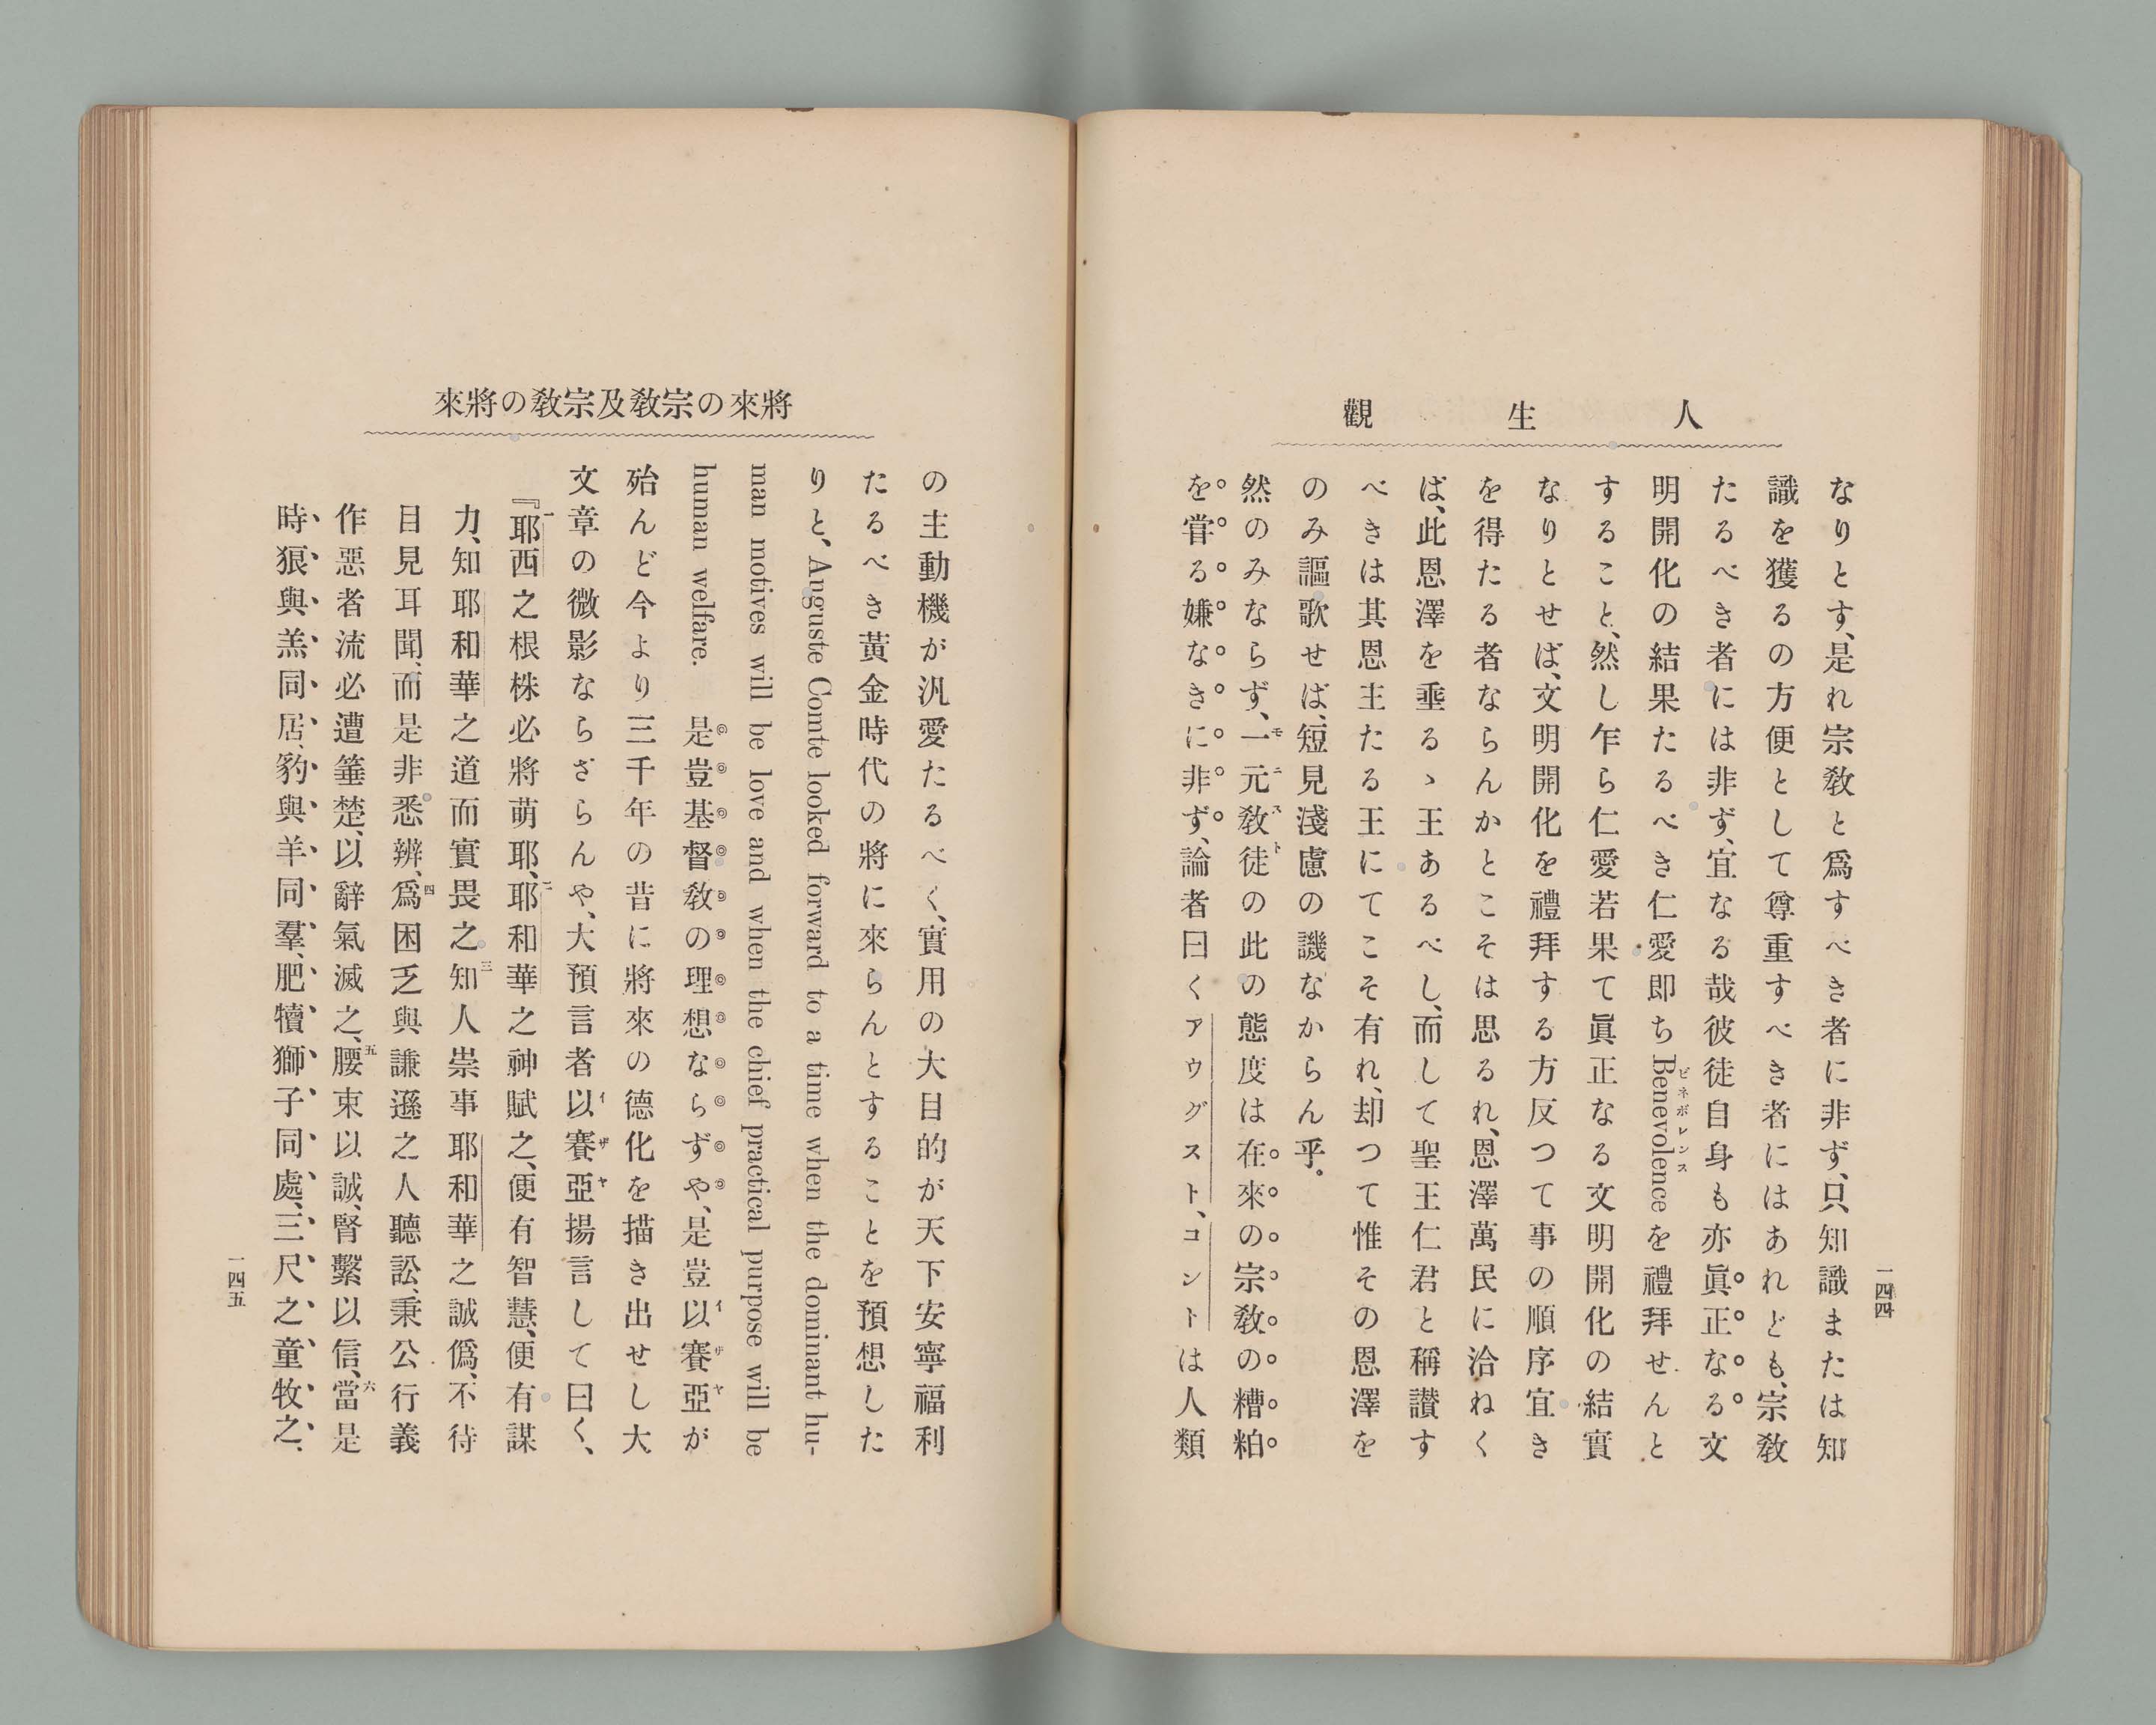 人生觀
一四四
なりとす、是れ宗教と爲すべき者に非ず、只知識または知
識を獲るの方便として尊重すべき者にはあれども、宗教
たるべき者には非ず、宜なる哉彼徒自身も亦眞正なる文
明開化の結果たるべき仁愛即ちBenevolenceを禮拜せんと
ビネボレンス
すること、然し乍ら仁愛若果て眞正なる文明開化の結實
なりとせば、文明開化を禮拜する方反つて事の順序宜き
を得たる者ならんかとこそは思るれ、恩澤萬民に洽ねく
ば、此恩澤を垂るゝ王あるべし、而して聖王仁君と稱讃す
べきは其恩主たる王にてこそ有れ、却つて惟その恩澤を
のみ謳歌せば、短見淺慮の譏なからん乎。
然のみならず、一元教徒の此の態度は在來の宗教の糟粕
モニスト
を甞る嫌なきに非ず、論者曰くアウグスト、コントは人類
將來の宗教及宗教の將來
の主動機が汎愛たるべく、實用の大目的が天下安寧福利
たるべき黃金時代の將に來らんとすることを預想した
りと、Anguste Comte looked forward to a time when the dominant hu-
man motives will be love and when the chief practical purpose will be
human welfare. 是豈基督敎の理想ならずや、是豈以賽亞が
イザヤ
殆んど今より三千年の昔に將來の德化を描き出せし大
文章の微影ならざらんや、大預言者以賽亞揚言して曰く、
イザヤ
『一耶西之根株必將萌耶、二耶和華之神賦之、便有智慧、便有謀
力、知耶和華之道而實畏之、三知人崇事耶和華之誠僞、不待
目見耳聞、而是非悉辨、四爲困乏與謙遜之人聽訟、秉公行義
作惡者流必遭箠楚、以辭氣滅之、五腰束以誠、腎繫以信、六當是
時、狼與羔同居、豹與羊同羣、肥犢獅子同處、三尺之童牧之、
一四五